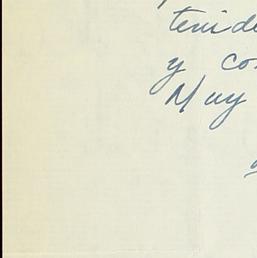 tenid
y co
Muy